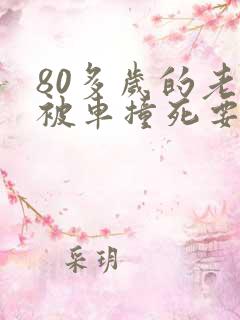 80多岁的老
被车撞死要
采玥